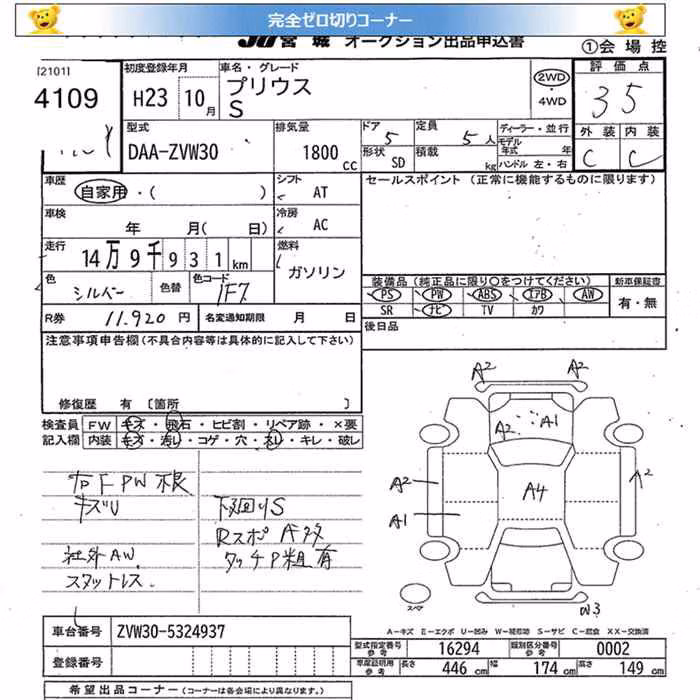 完全ゼロ切りコーナー
JU宮城 オークション出品申込書
①会場控
[2101]
4109
初度登録年月 車名・グレード 評価点
H23 10月 プリウス
S
2WD
4WD
35
外装 内装
C C
型式 排気量 ドア 定員 ディーラー・並行
DAA-ZVW30 1800 cc 5 5人 モデル年式 年
形状 SD 積載 kg ハンドル 左・右
車歴 自家用・( ) シフト AT セールスポイント (正常に機能するものに限ります)
車検 年 月( 日) 冷房 AC
走行 14万9千931km 燃料 ガソリン
色 シルバー 色替 色コード 1F7
装備品 (純正品に限り○をつけてください) 新車保証書
PS PW ABS エアB AW 有・無
SR ナビ TV カワ
R券 11,920円 名変通知期限 月 日
後日品
注意事項申告欄(不具合内容等は具体的に記入して下さい)
修復歴 有 〔箇所
検査員 FW キズ・飛石・ヒビ割・リペア跡・×要
記入欄 内装 キズ・汚レ・コゲ・穴・スレ・キレ・破レ
A2 A2
A2 A1
A2 A4 A2
A1
右F PW 不良
キズU
下廻りS
Rスポ A多
タッチP粗 有
社外AW
スタットレス
スペア
W3
車台番号 ZVW30-5324937
登録番号
A-キズ E-エクボ U-凹み W-補修跡 S-サビ C-腐食 XX-交換済
型式指定番号 参考 16294 類別区分番号 参考 0002
車庫証明用 参考 長さ 446cm 幅 174cm 高さ 149cm
希望出品コーナー (コーナーは各会場により異なります。)